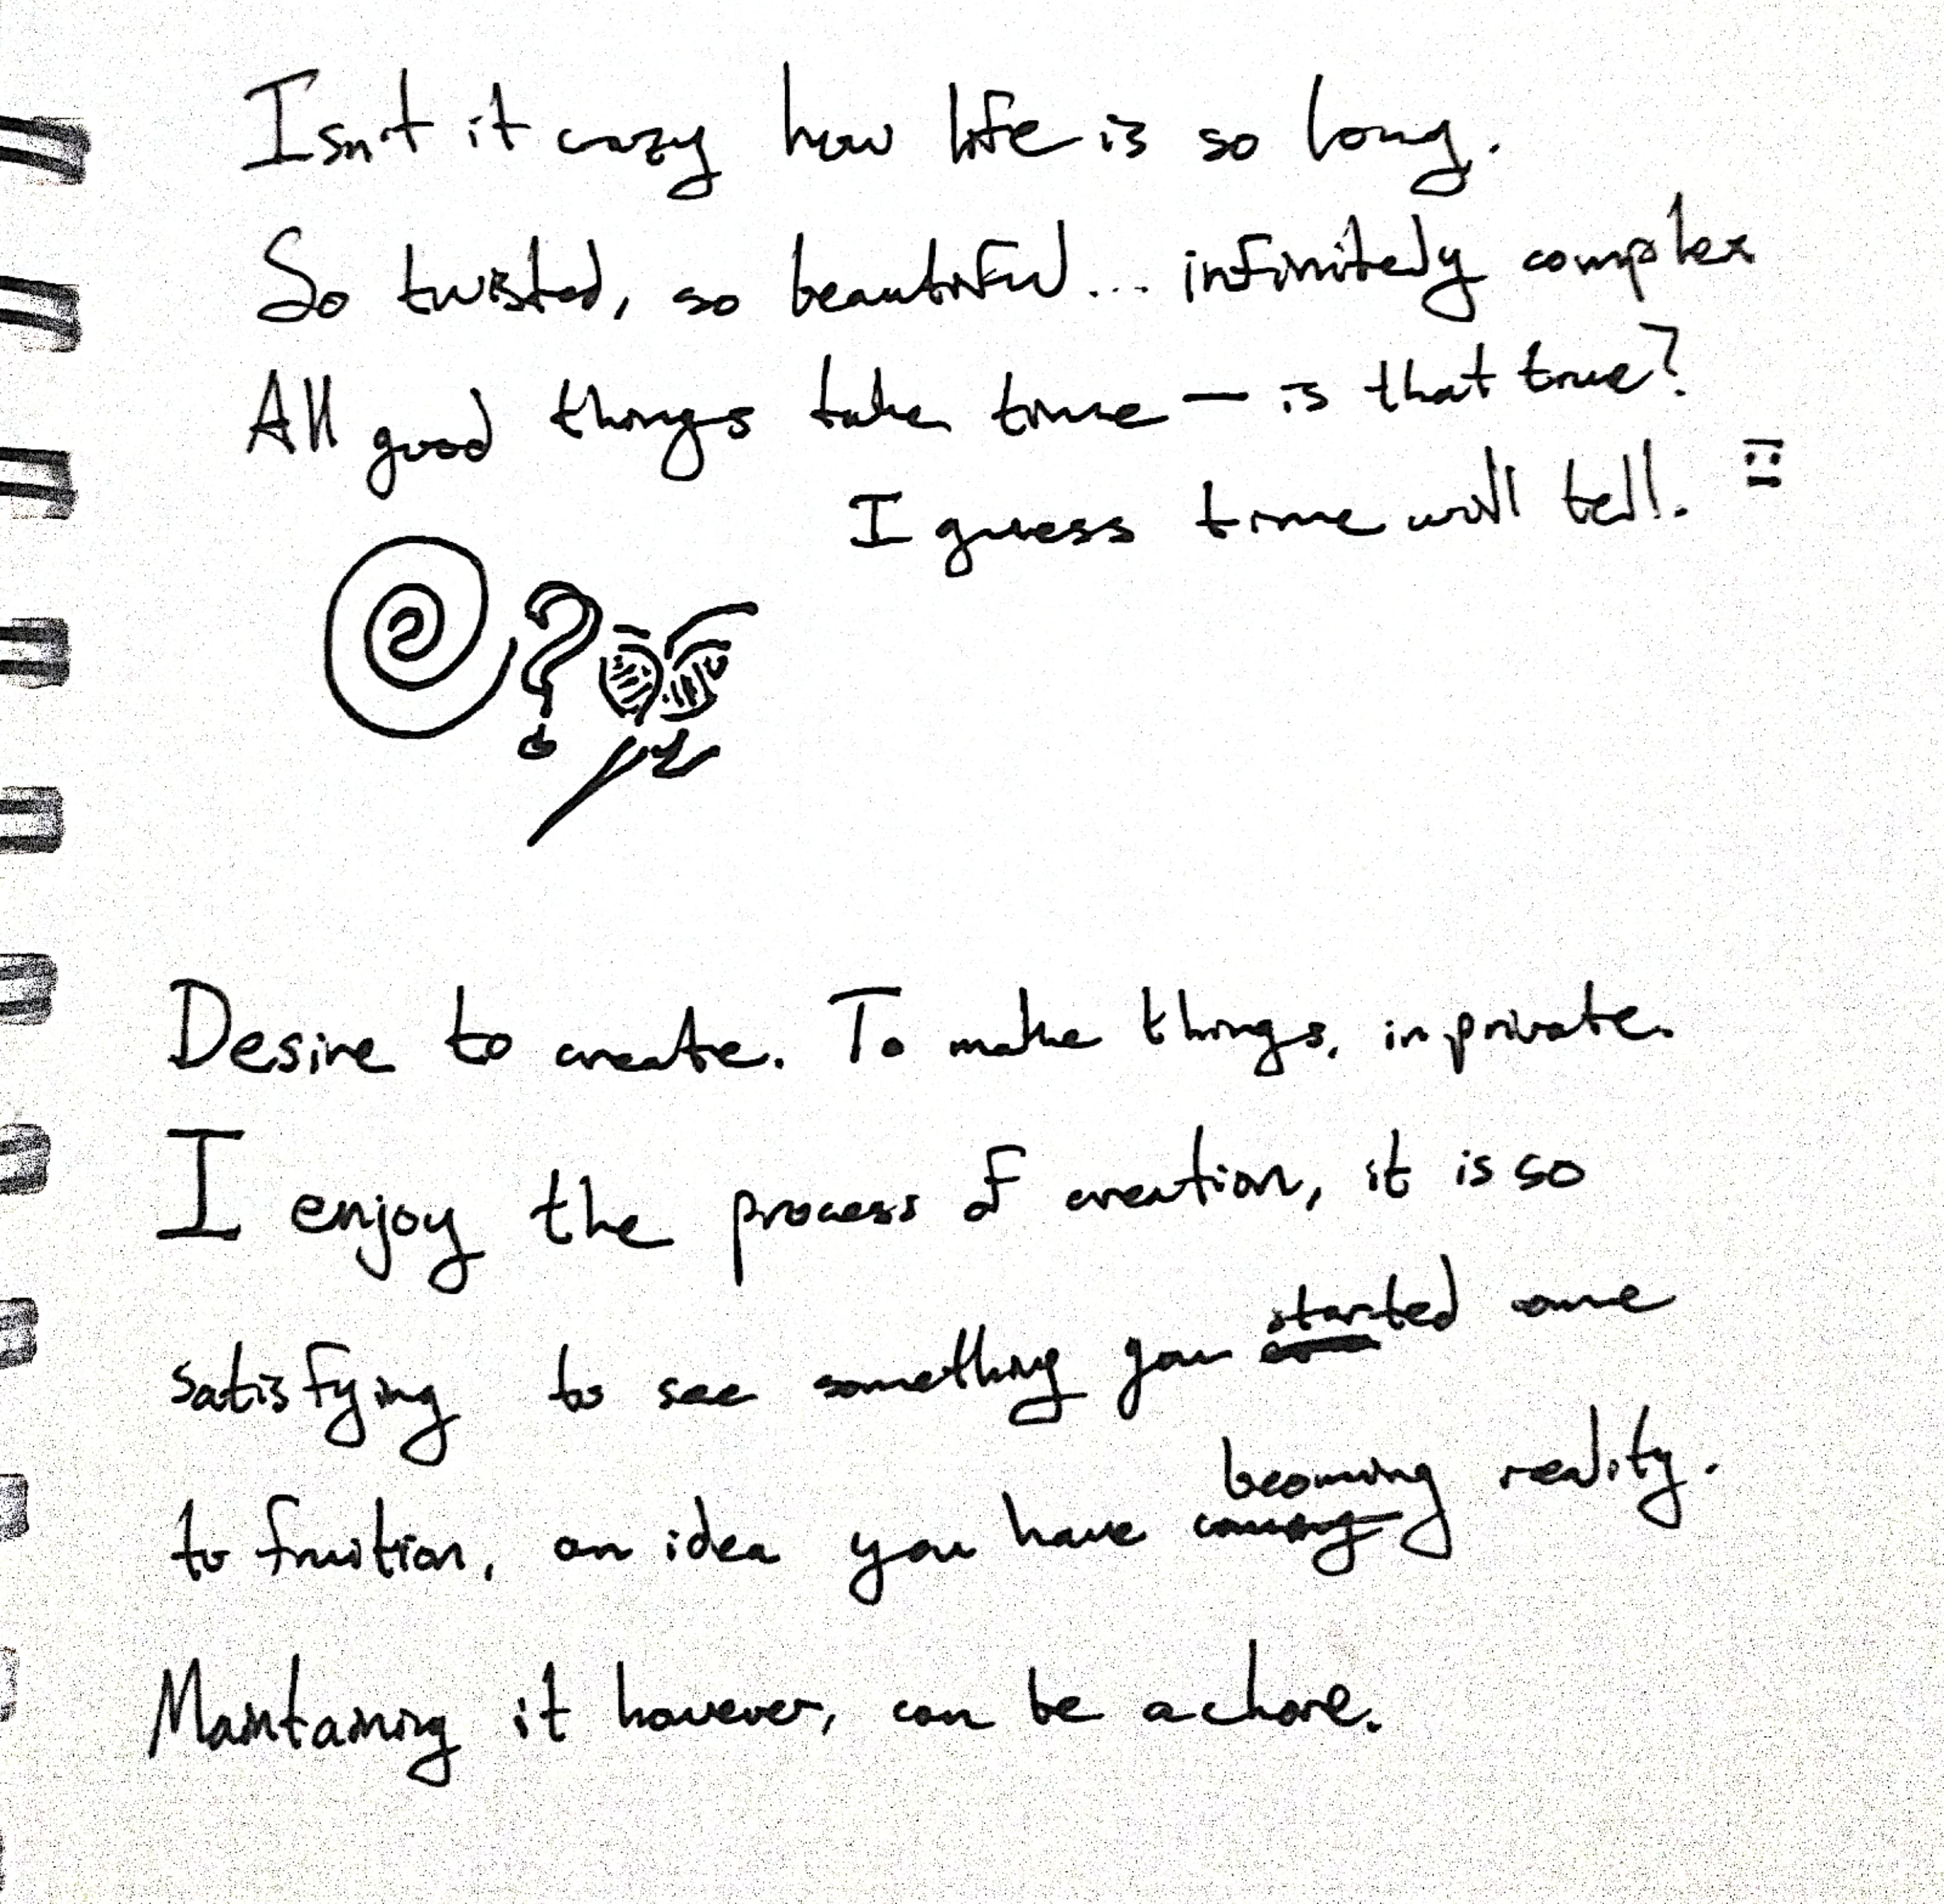 Isn't it crazy how life is so long.
So twisted, so beautiful... infinitely complex
All good things take time — is that true?
I guess time will tell.
?
Desire to create. To make things, in private.
I enjoy the process of creation, it is so
satisfying to see something you started come
to fruition, an idea you have coming becoming reality.
Maintaining it however, can be a chore.